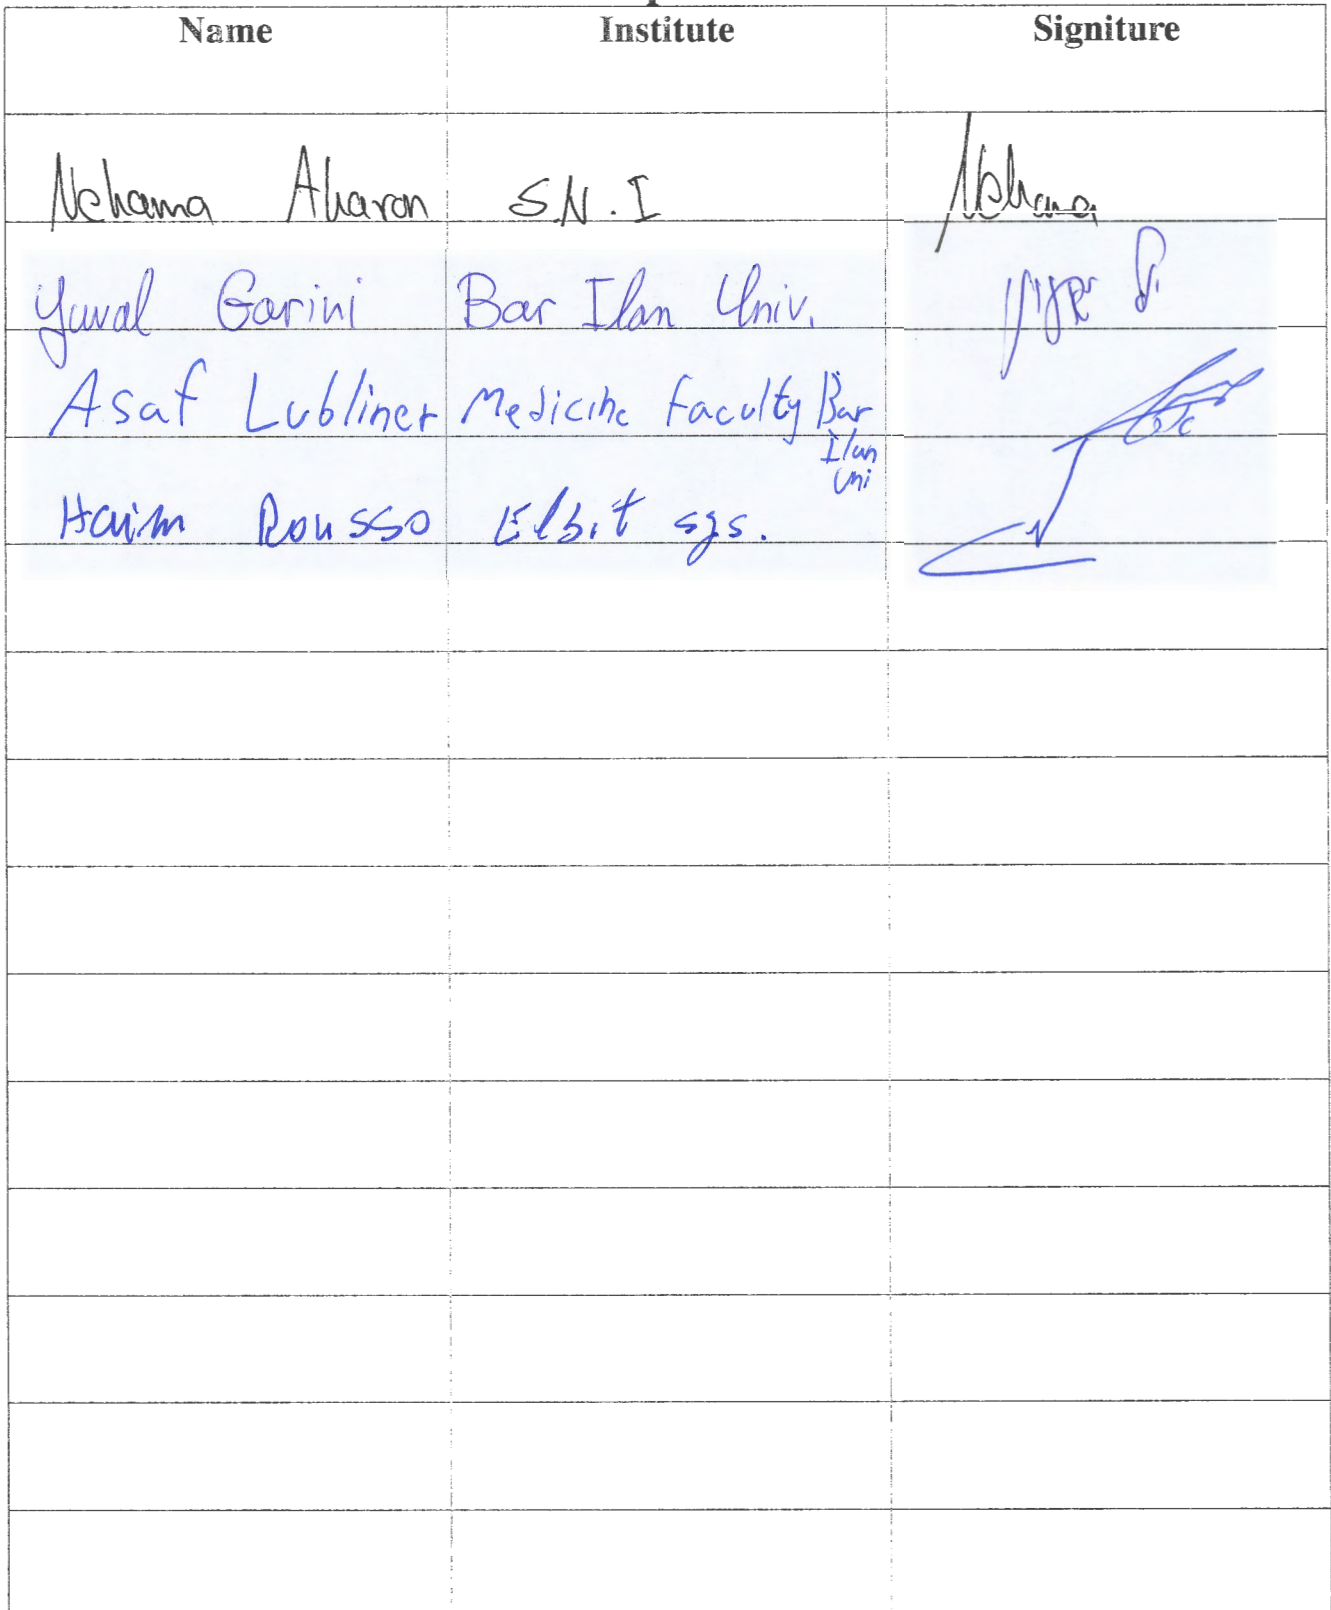 Name Institute Signiture
Nehama Aharon S.N.I Nehama
Yuval Garini Bar Ilan Univ.
Asaf Lubliner Medicine Faculty Bar
Ilan
Uni
Haim Rousso Elbit sys.